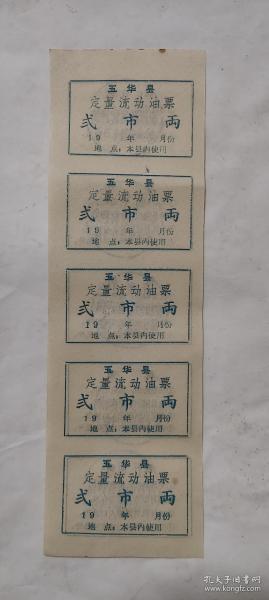 五华县
定量流动油票
弍市両
19 年 月份
地点：本县内使用
五华县
定量流动油票
弍市両
19 年 月份
地点：本县内使用
五华县
定量流动油票
弍市両
19 年 月份
地点：本县内使用
五华县
定量流动油票
弍市両
19 年 月份
地点：本县内使用
五华县
定量流动油票
弍市両
19 年 月份
地点：本县内使用
孔夫子旧书网